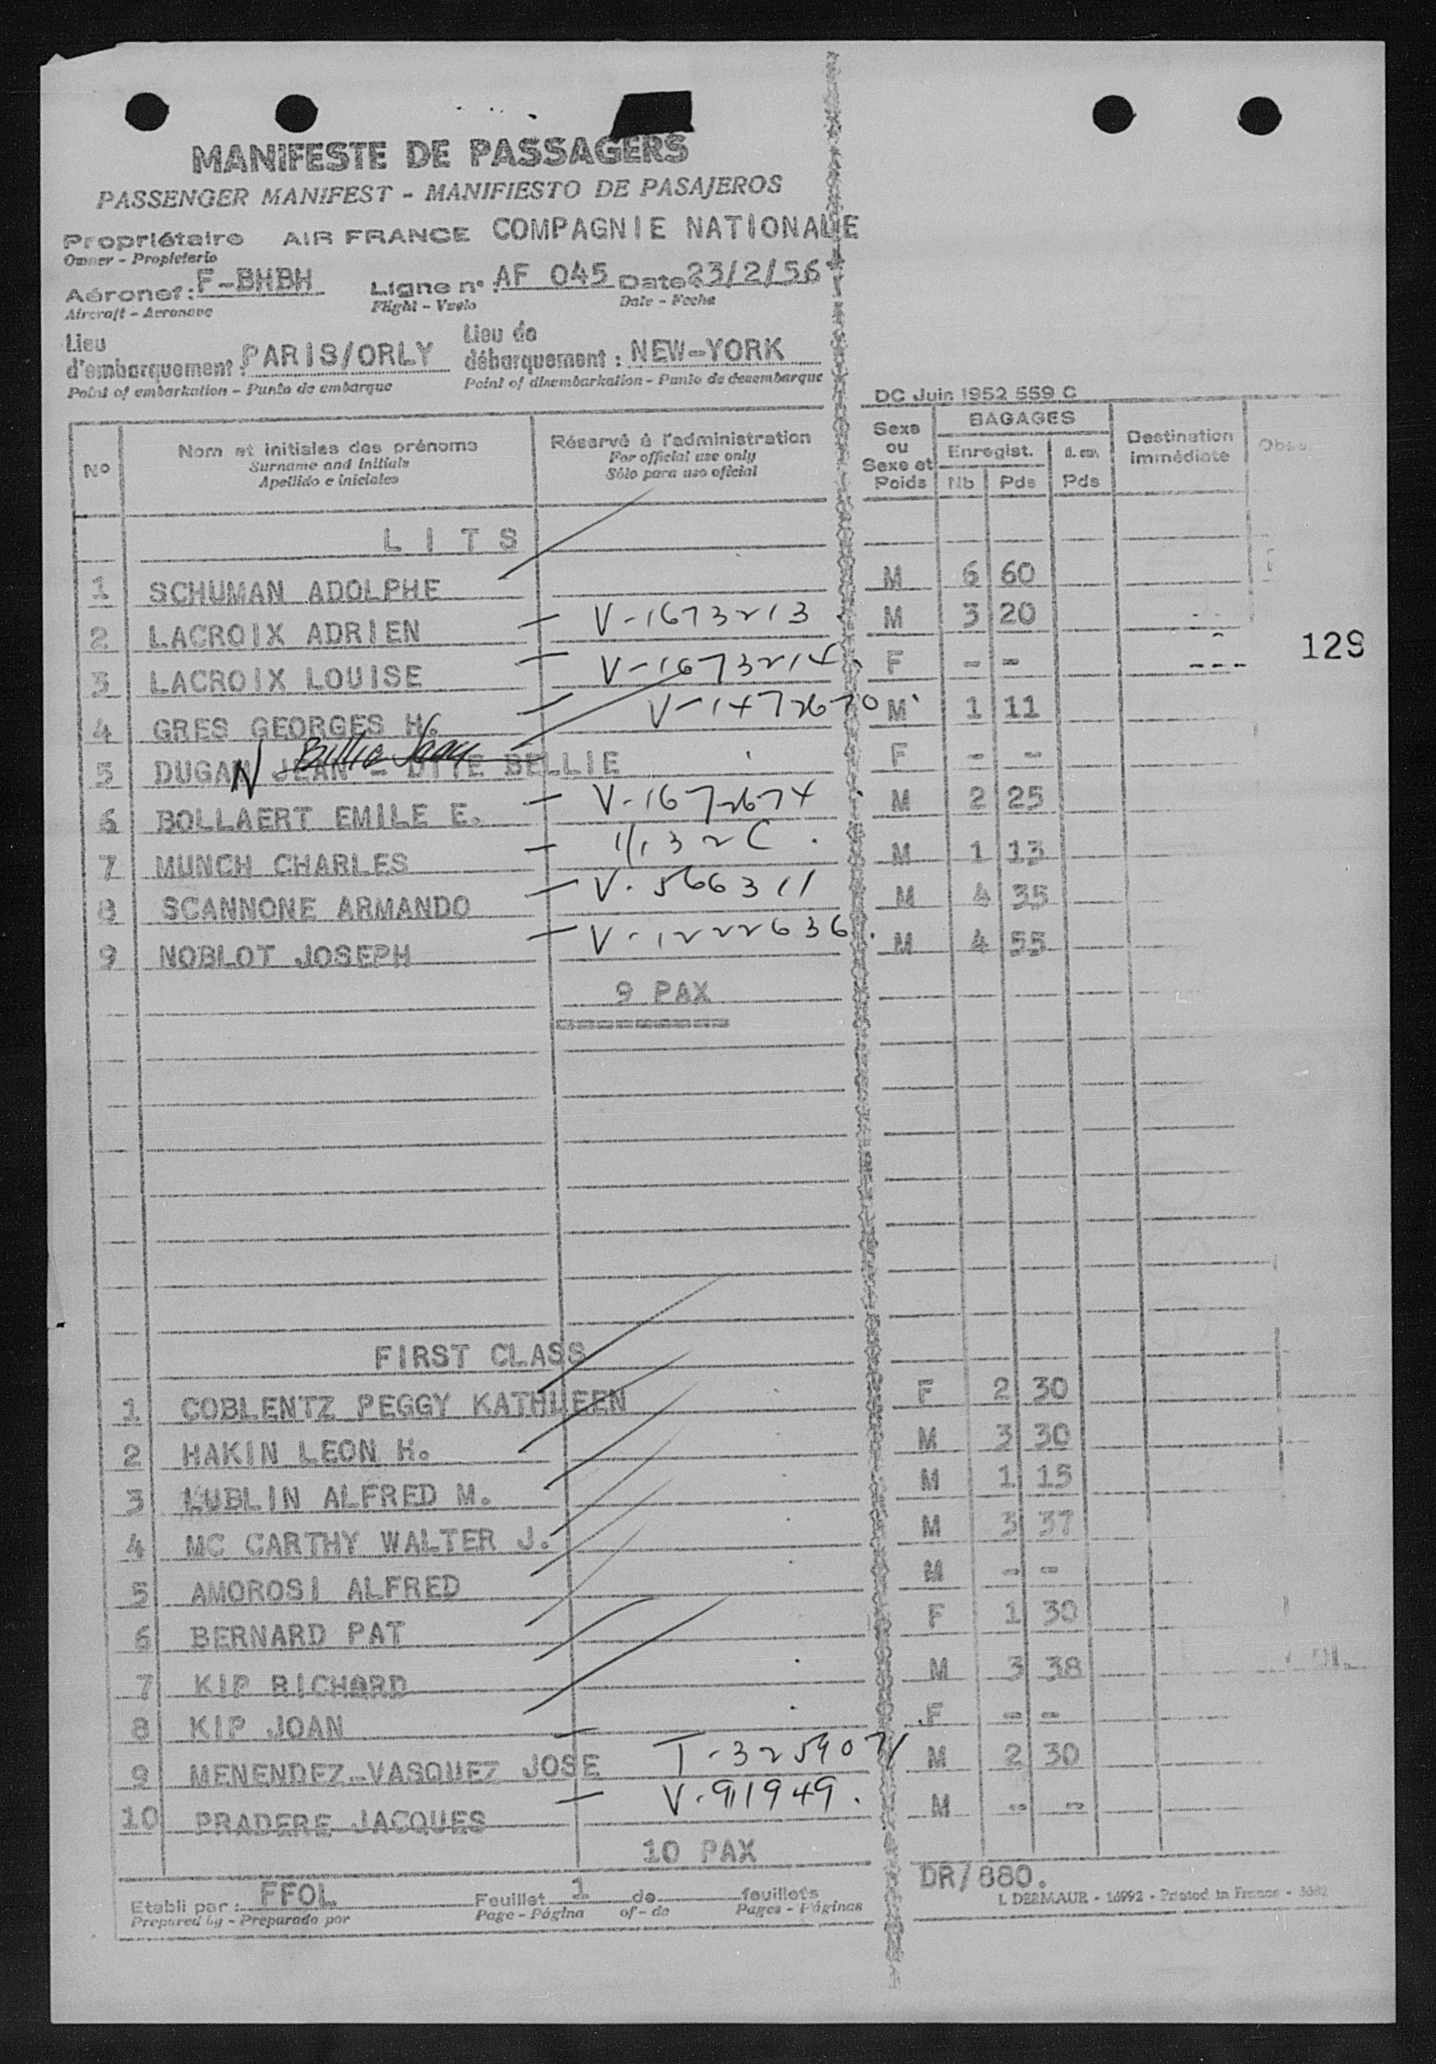 MANIFESTE DE PASSAGERS
PASSENGER MANIFEST - MANIFIESTO DE PASAJEROS
Propriétaire AIR FRANCE COMPAGNIE NATIONALE
Owner - Propietario
Aéronef : F-BHBH Ligne n° : AF 045 Date 23/2/56
Aircraft - Aeronave Flight - Vuelo Date - Fecha
Lieu d'embarquement : PARIS/ORLY Lieu de débarquement : NEW-YORK
Point of embarkation - Punto de embarque Point of disembarkation - Punto de desembarque
DC Juin 1952 559 C
N° Nom et initiales des prénoms Réservé à l'administration Sexe ou Sexe et Poids BAGAGES Destination immédiate
Surname and Initials For official use only Enregist.
Apellido e iniciales Sólo para uso oficial Nb Pds Pds
L I T S
1 SCHUMAN ADOLPHE M 6 60
2 LACROIX ADRIEN - V-1673213 M 3 20
3 LACROIX LOUISE - V-1673214 F - - ---
129
4 GRES GEORGES H. - V-1472670 M 1 11
Billie Jean
5 DUGAN JEAN - DITE BELLIE F - -
6 BOLLAERT EMILE E. - V-1672674 M 2 25
7 MUNCH CHARLES - M 1 13
8 SCANNONE ARMANDO - V-566311 M 4 35
9 NOBLOT JOSEPH - V-1222636 M 4 55
9 PAX
==========
FIRST CLASS
1 COBLENTZ PEGGY KATHLEEN F 2 30
2 HAKIN LEON H. M 3 30
3 LUBLIN ALFRED M. M 1 15
4 MC CARTHY WALTER J. M 3 37
5 AMOROSI ALFRED M - -
6 BERNARD PAT F 1 30
7 KIP RICHARD M 3 38
8 KIP JOAN F - -
9 MENENDEZ-VASQUEZ JOSE - M 2 30
10 PRADERE JACQUES - V-911949. M - -
10 PAX
DR/880.
Etabli par : FFOL Feuillet 1 de feuillets
Prepared by - Preparado por Page - Página of - de Pages - Páginas
L DERMAUR - 16992 - Printed in France -